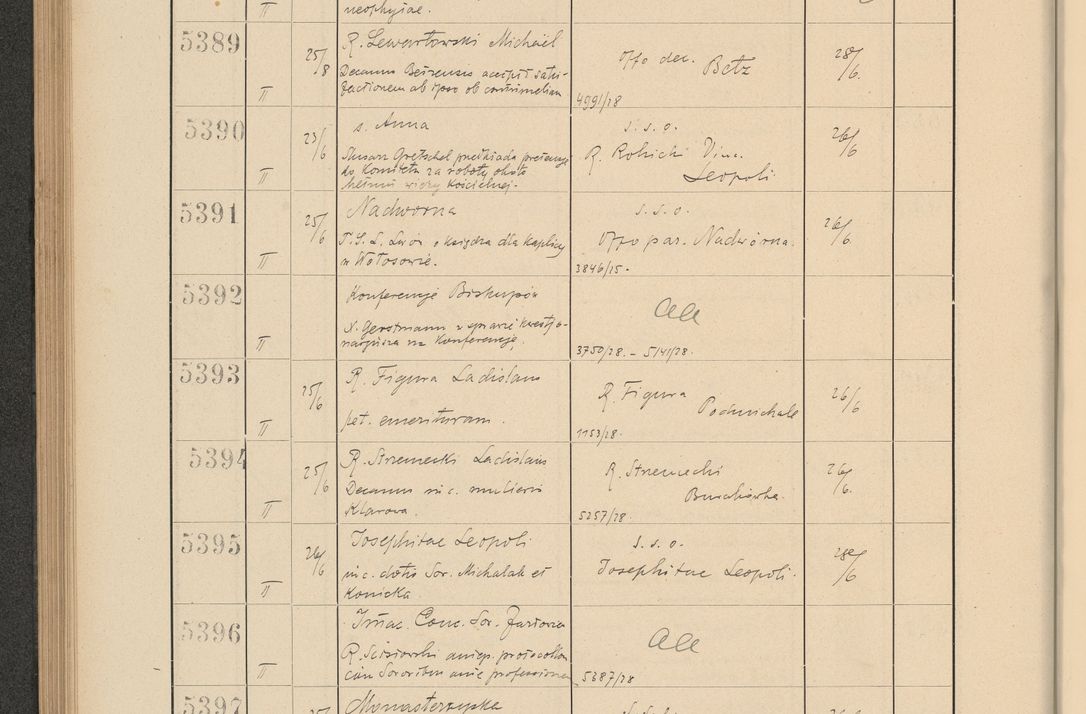 II neophyiae.
5389 II 25/8 R. Lewartowski Michaël
Decanus Belzensis accepit satis-
factionem ab ipso ob contumeliam
Offo dec. Bełz
4991/28
28/6.
5390 II 23/6 s. Anna
Gretschel przedkłada pretensję
do Komitetu za roboty około
hełmu wieży kościelnej.
s. s. o.
R. Rokicki
Leopoli
26/6
5391 II 25/6 Nadworna
T.S.L. Lwów o księdza dla kaplicy
w Wołosowie.
s. s. o.
Offo par. Nadwórna.
3846/25.
26/6.
5392 II Konferencje Biskupów
X. Gerstmann w sprawie kwestjo-
narjusza na Konferencję.
aa
3750/28. - 5141/28.
5393 II 25/6 R. Figura Ladislaus
pet. emerituram.
R. Figura
Podmichale
1153/28.
26/6
5394 II 25/6 R. Strzemecki Ladislaus
Decanus in c. mulieris
Klarowa.
R. Strzemecki
5257/28.
26/6.
5395 II 26/6 Josephitae Leopoli
in c. dotis Sor. Michalak et
Konicka.
s. s. o.
Josephitae Leopoli.
28/6
5396 II Imac. Conc. Sor.
R. Scisiowski
Sororibus ante professionem
aa
5387/28
5397 25 Monasterzyska
s. s. o.